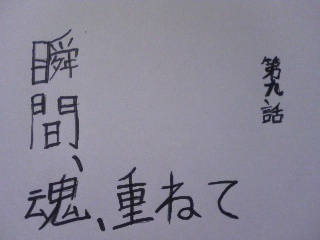 第九、話
瞬間、
魂、重ねて